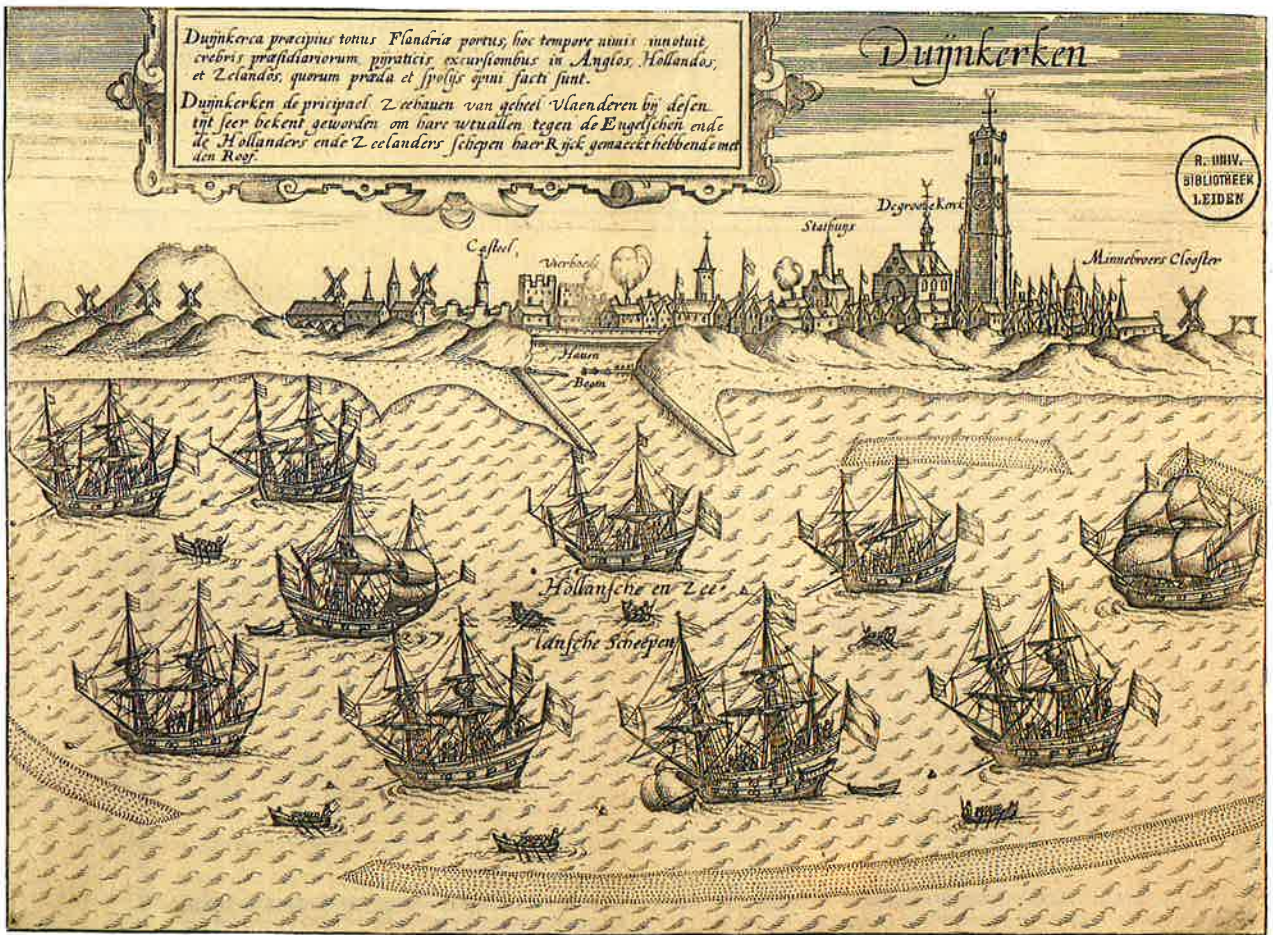 Duijnkerca præcipius totius Flandriæ portus, hoc tempore nimis innotuit
crebris præsidiariorum, pyraticis excursionibus in Anglos, Hollandos,
et Zelandos, quorum præda et spolijs opini facti sunt.
Duijnkerken de pricipael Zeehauen van geheel Vlaenderen bij desen
tijt seer bekent geworden om hare wtuallen tegen de Engelschen ende
de Hollanders ende Zeelanders schepen haer Rijck gemaeckt hebbende met
den Roof.
Duijnkerken
R. UNIV.
BIBLIOTHEEK
LEIDEN
De groote Kerk
Stathuys
Casteel,
Vierboede
Minnebroers Clooster
Hauen
Begin
Hollansche en Zee-
lansche Scheepen